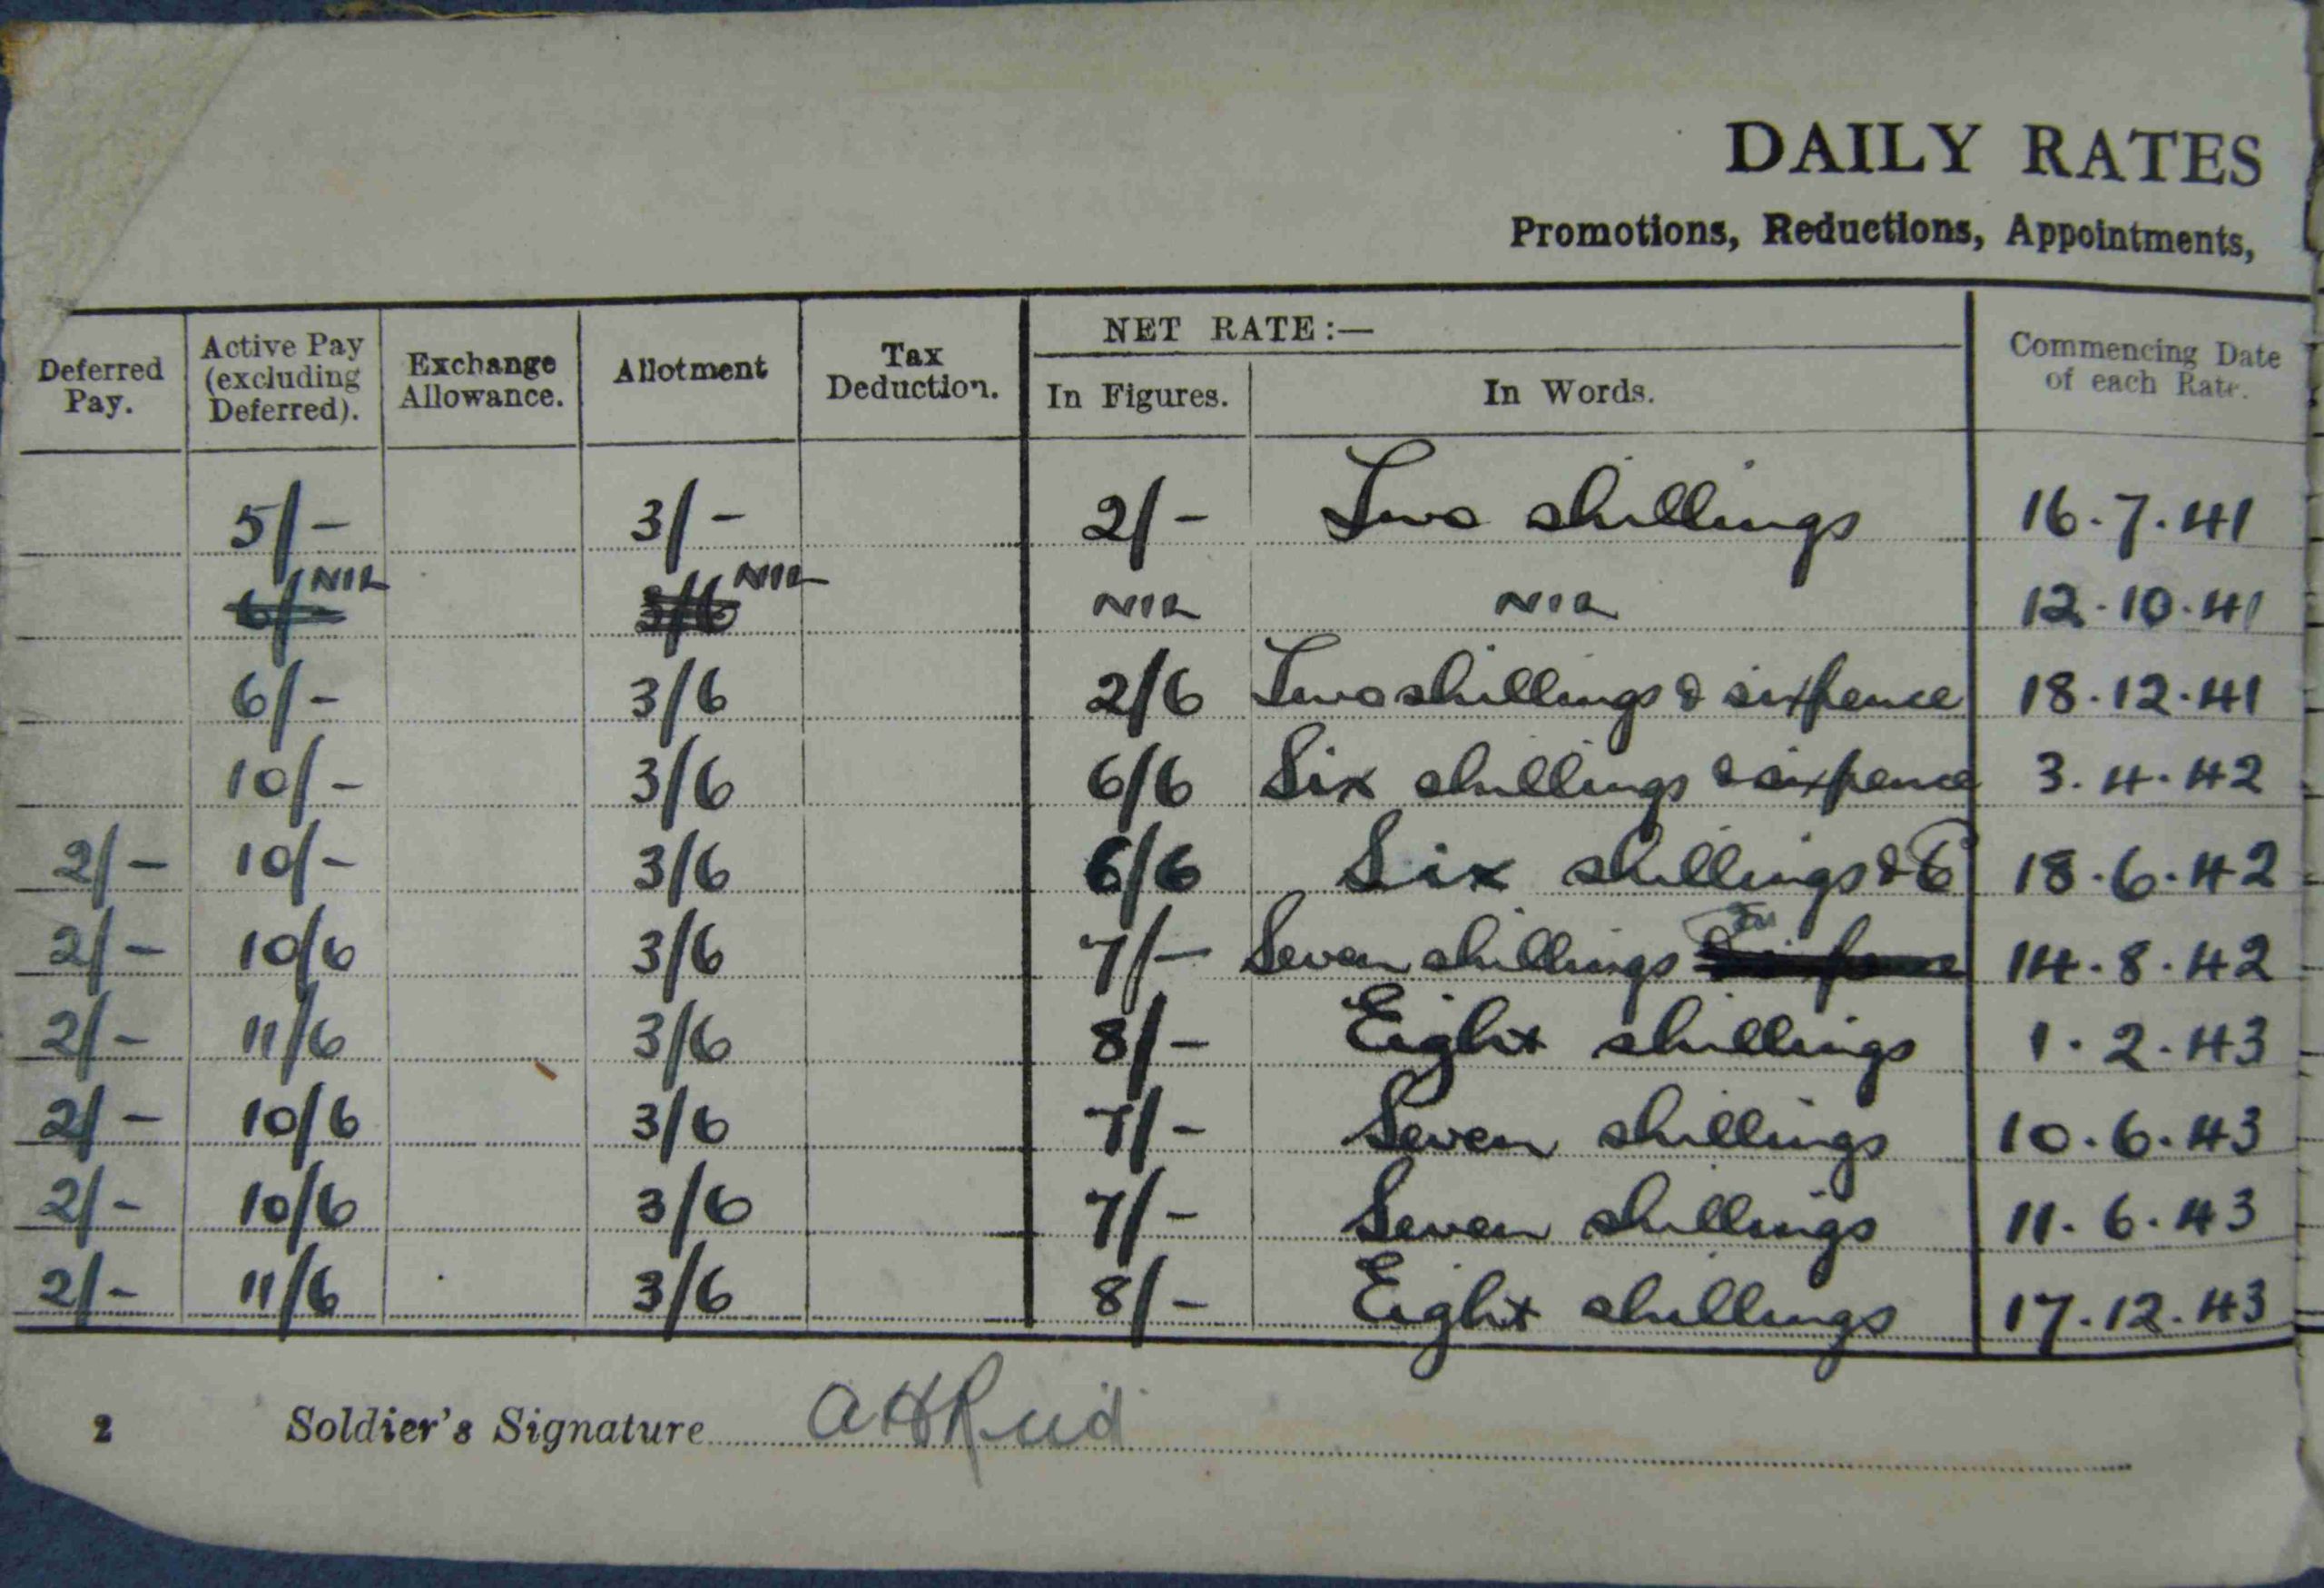 DAILY RATES
Promotions, Reductions, Appointments,
Deferred Pay. Active Pay (excluding Deferred). Exchange Allowance. Allotment Tax Deduction. NET RATE:— In Figures. In Words. Commencing Date of each Rate.
5/- 3/- 2/- Two shillings 16.7.41
6/ NIL 3/6 NIL NIL NIL 12.10.41
6/- 3/6 2/6 Two shillings & sixpence 18.12.41
10/- 3/6 6/6 Six shillings & sixpence 3.4.42
2/- 10/- 3/6 6/6 Six shillings & 6 18.6.42
2/- 10/6 3/6 7/- Seven shillings 14.8.42
2/- 11/6 3/6 8/- Eight shillings 1.2.43
2/- 10/6 3/6 7/- Seven shillings 10.6.43
2/- 10/6 3/6 7/- Seven shillings 11.6.43
2/- 11/6 3/6 8/- Eight shillings 17.12.43
2 Soldier's Signature AHReid